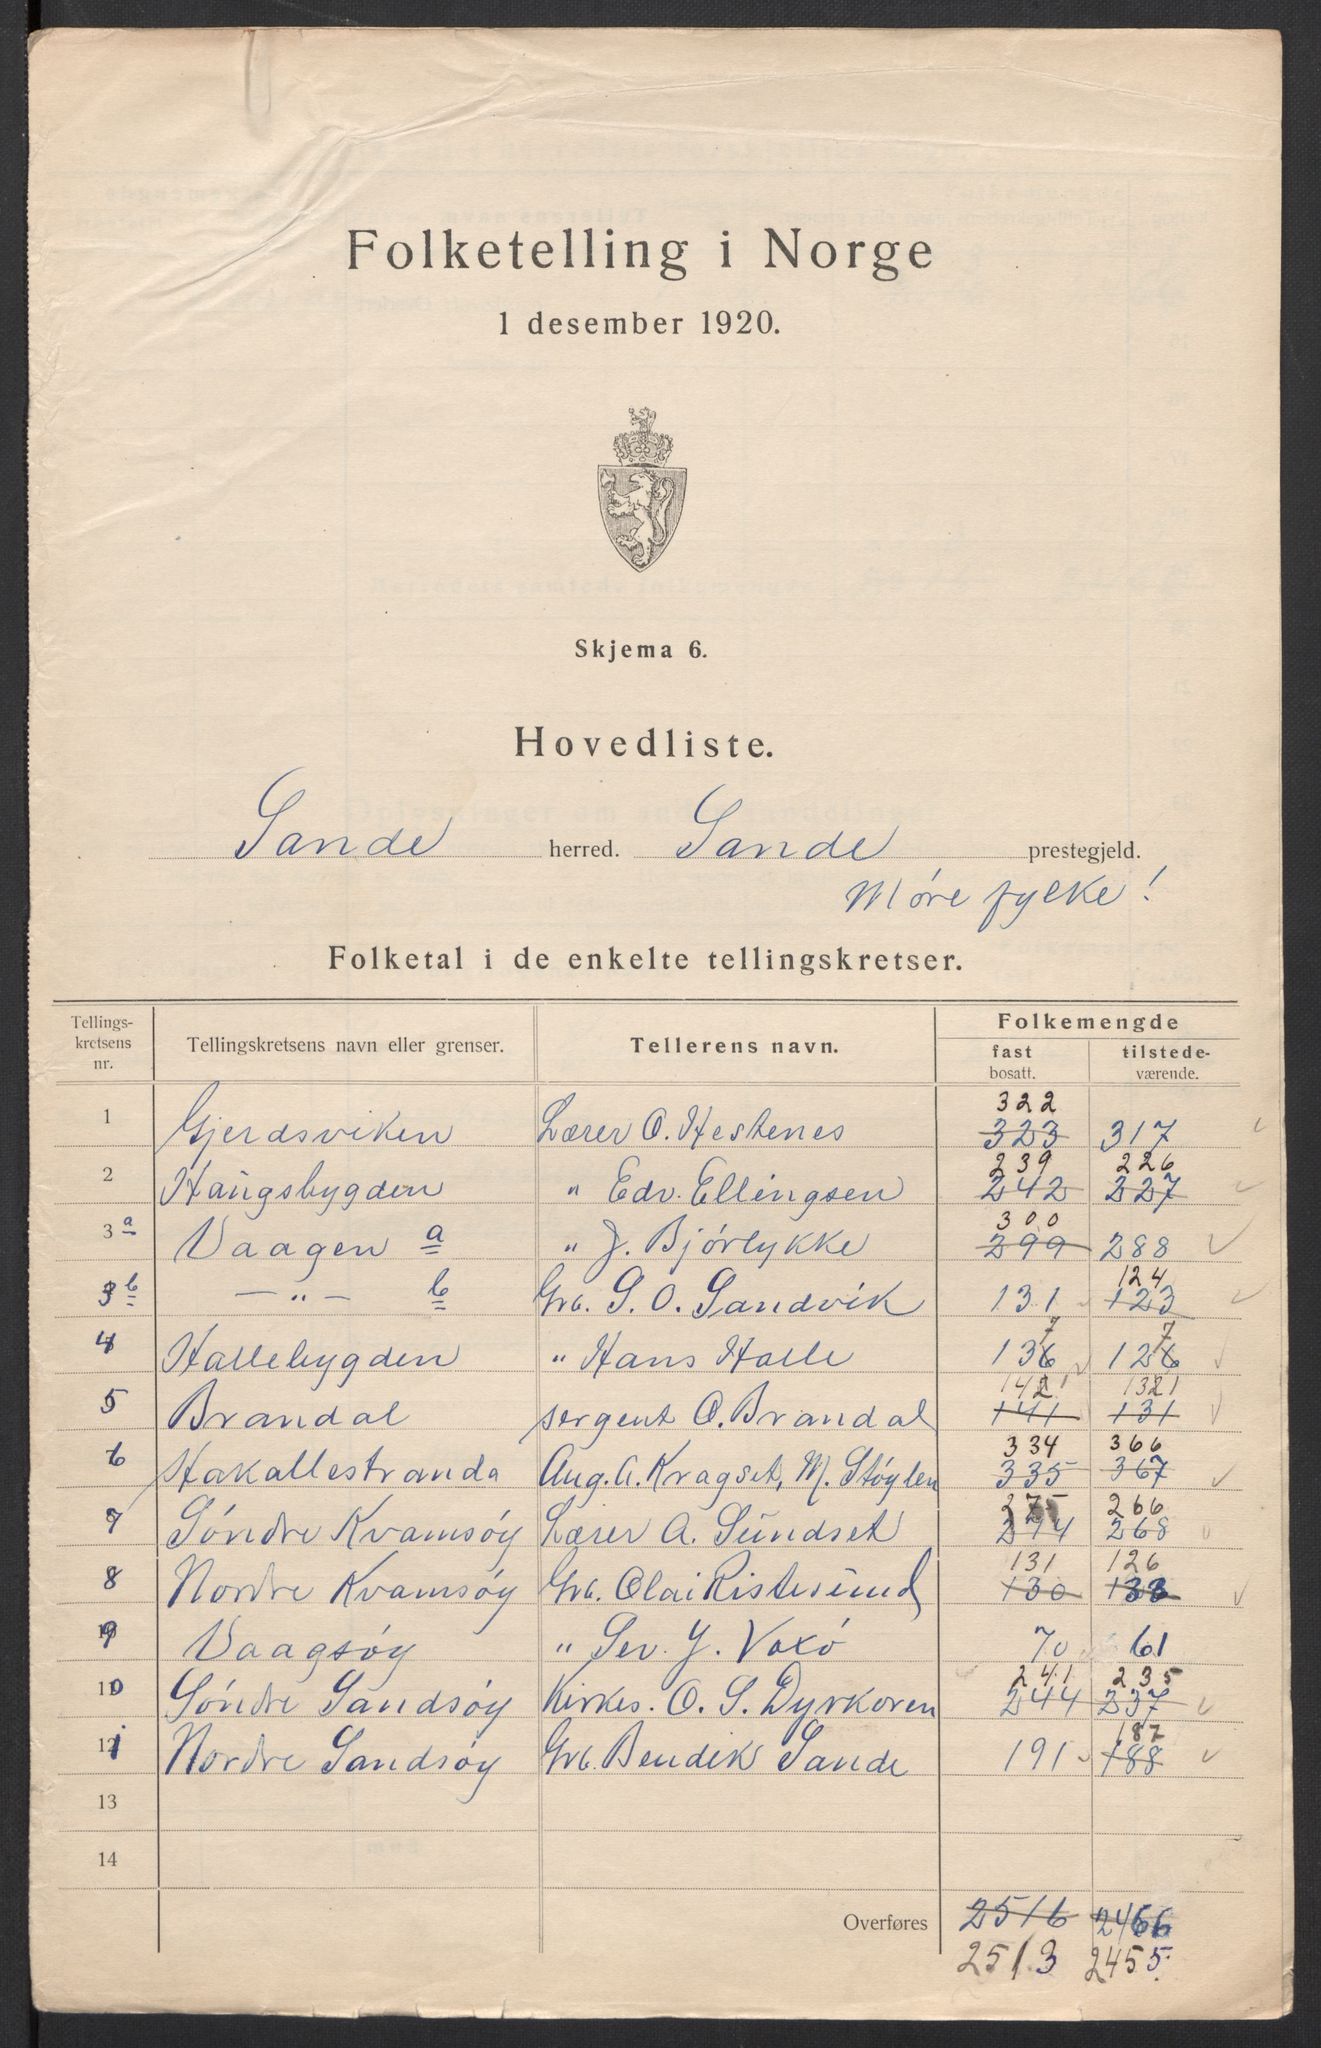 Folketelling i Norge
1 desember 1920.
Skjema 6.
Hovedliste.
Sande herred. Sande prestegjeld.
Møre fylke!
Folketal i de enkelte tellingskretser.
Tellingskretsens nr. Tellingskretsens navn eller grenser. Tellerens navn. Folkemengde
fast bosatt. tilstedeværende.
322
1 Gjerdsviken Lærer O. Hestenes 323 317
239 226
2 Haugsbygden " Edv. Ellingsen 242 227
300
3 a Vaagen a " J. Bjørlykke 299 288
124
3 b — " — b Grb. S. O. Sandvik 131 123
7 7
4 Hallebygden " Hans Halle 136 126
142 1321
5 Brandal sergent O. Brandal 141 131
334 366
6 Hakallestranda Aug. A. Kragset, M. Støylen 335 367
275 266
7 Søndre Kvamsøy Lærer A. Sundset 274 268
131 126
8 Nordre Kvamsøy Grb. Olai Ristesund 130
9 Vaagsøy " Sev. J. Voxö 70 61
241 235
10 Søndre Sandsøy Kirkes. O. S. Dyrkoren 244 237
187
11 Nordre Sandsøy Grb. Bendik Sande 191 188
13
14
Overføres 2516 2466
2513 2455